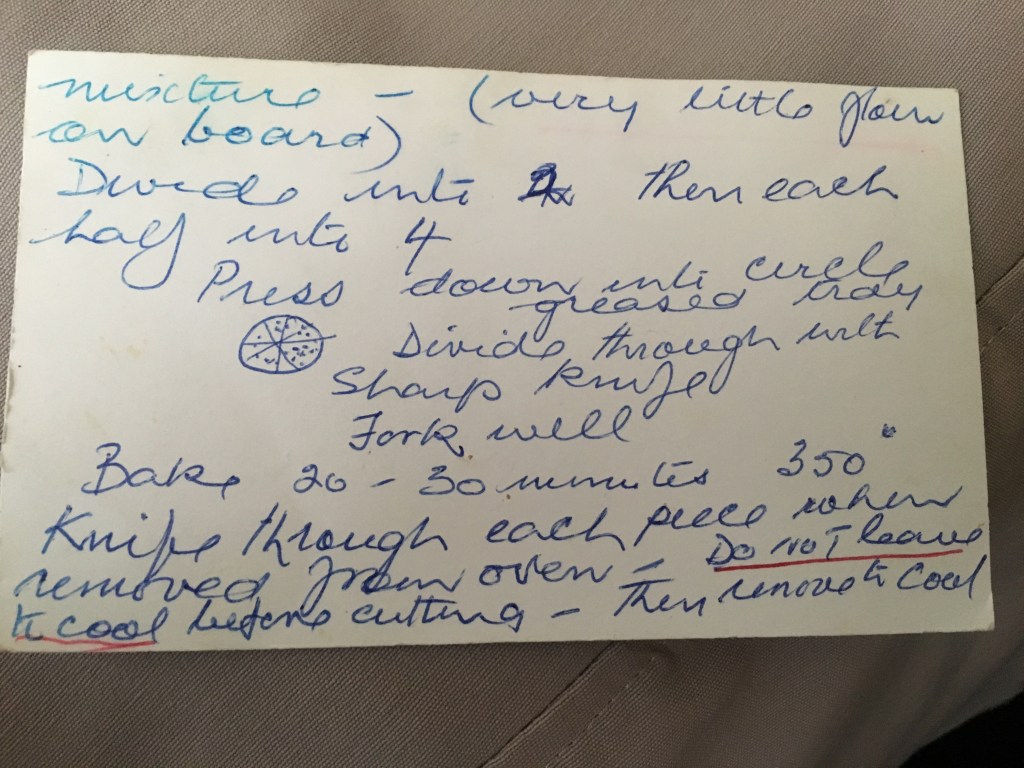 mixture - (very little flour
on board)
Divide into 2 then each
half into 4
Press down into circle
greased tray
Divide through with
Sharp knife
Fork well
Bake 20 - 30 minutes 350°
Knife through each piece when
removed from oven - Do not leave
to cool before cutting - Then remove to cool